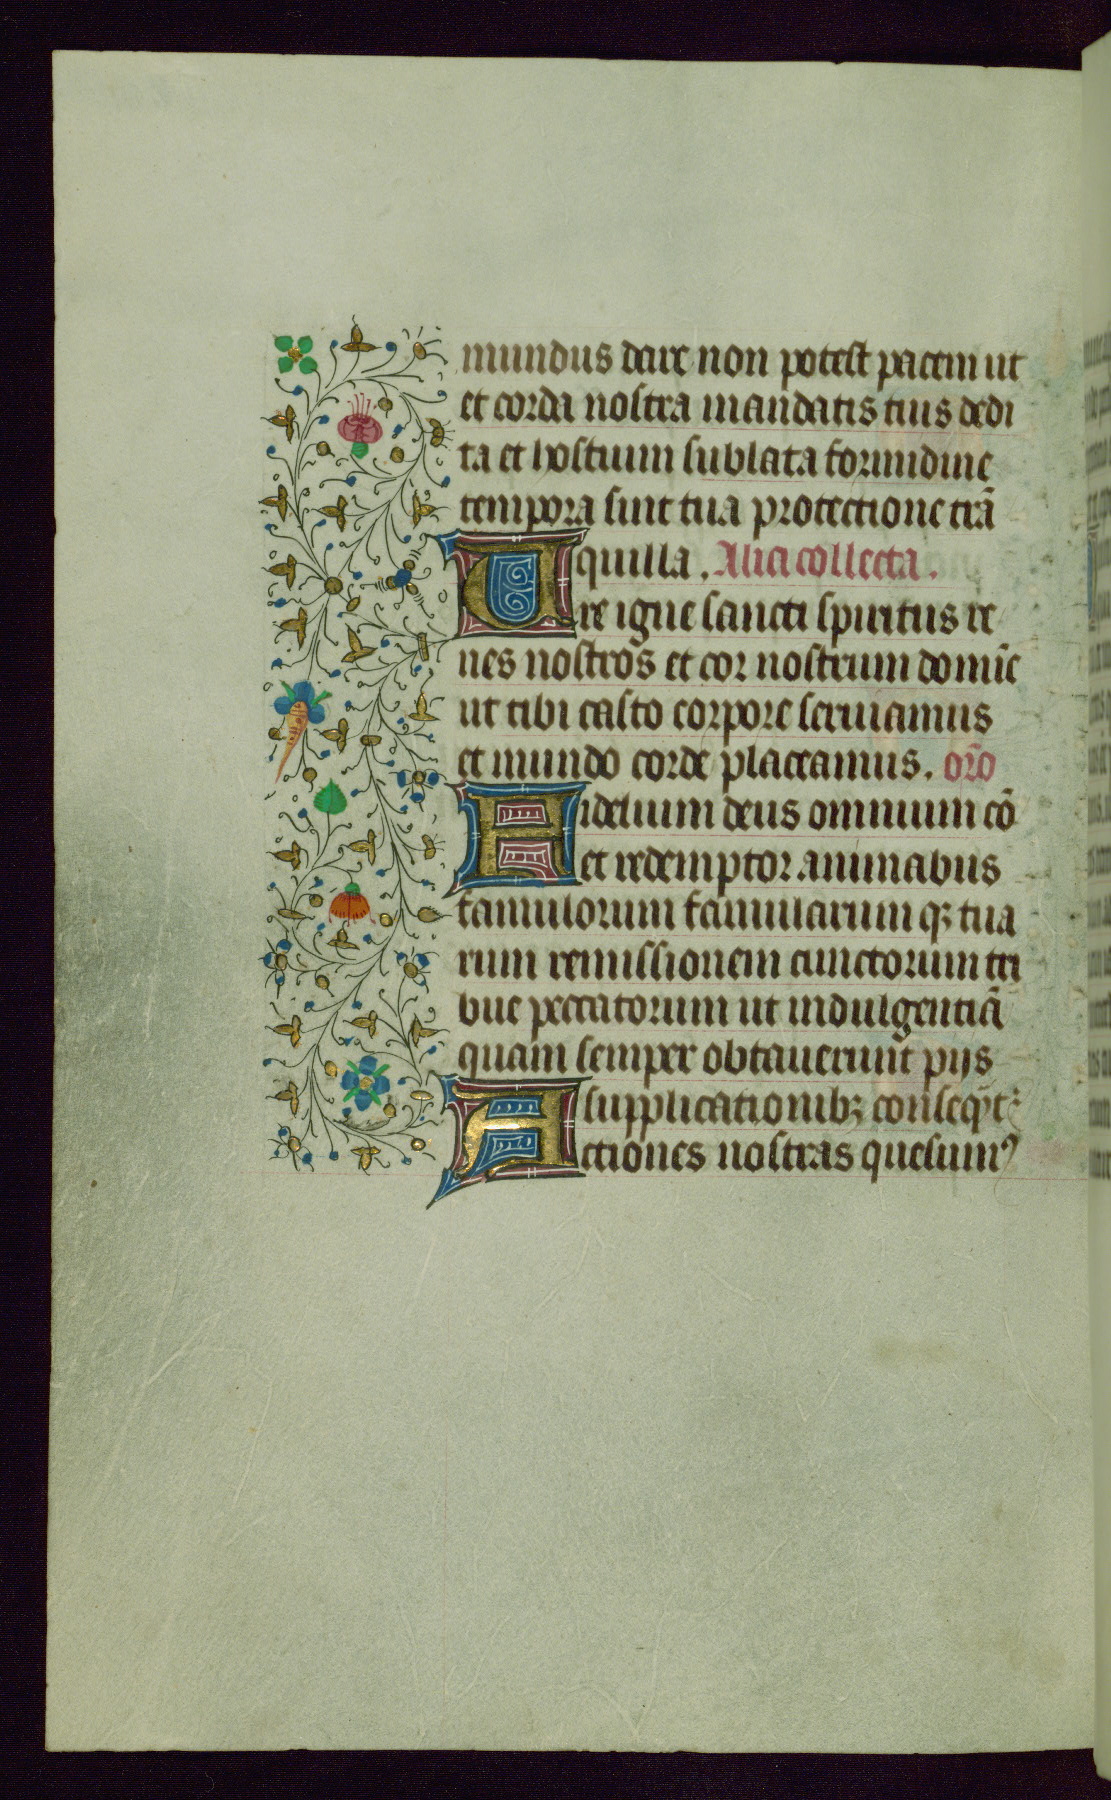 mundus dare non potest pacem ut
et corda nostra mandatis tuis dedi
ta et hostium sublata formidine
tempora sint tua protectione trā
quilla. Alia collecta.
Ure igne sancti spiritus re
nes nostros et cor nostrum domīe
ut tibi casto corpore seruiamus
et mundo corde placeamus. oro
Fidelium deus omnium cō
et redemptor animabus
famulorum famularum qꝫ tua
rum remissionem cunctorum tri
bue peccatorum ut indulgentiā
quam semper obtauerunt pijs
supplicationibꝫ conseqn̄t̉
Actiones nostras quesumꝰ